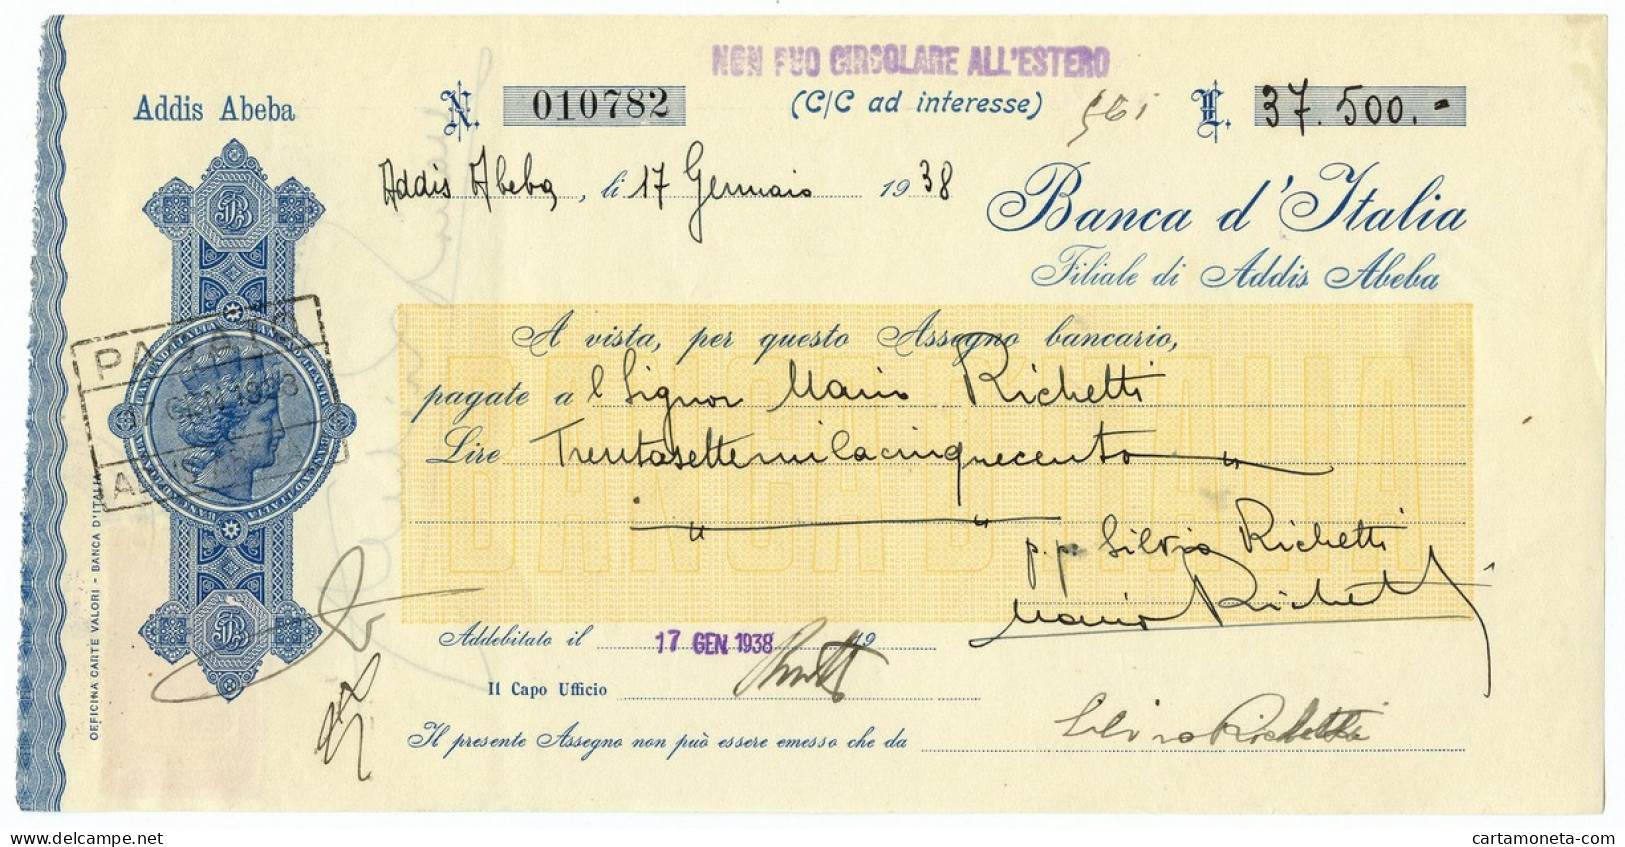 NON PUO CIRCOLARE ALL'ESTERO
Addis Abeba
N. 010782
(C/C ad interesse)
L. 37.500.-
Addis Abeba, li 17 Gennaio 1938
Banca d'Italia
Filiale di Addis Abeba
A vista, per questo Assegno bancario,
pagate a l Signor Mario Richetti
Lire Trentasettemilacinquecento
p.p. Silvia Richetti
Mario Richetti
PAGATO
17 GEN. 1938
BANCA D'ITALIA
Addebitato il 17 GEN. 1938 19
Il Capo Ufficio
Il presente Assegno non può essere emesso che da Silvia Richetti
OFFICINA CARTE VALORI - BANCA D'ITALIA
cartamoneta-com
www.delcampe.net